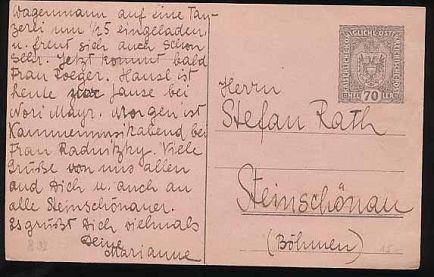 Wagenmann auf eine Tan-
zerei um 1/5 eingeladen
u. freut sich auch schon
sehr. Jetzt kommt bald
Frau Roeger. Hansl ist
heute zur Jause bei
Nori Mayr. Morgen ist
Kammermusikabend bei
Frau Radnitzky. Viele
Grüße von uns allen
and Dich u. auch an
alle Steinschönauer.
Es grüßt Dich vielmals
Deine
Marianne
70
Herrn
Stefan Rath
Steinschönau
(Böhmen)